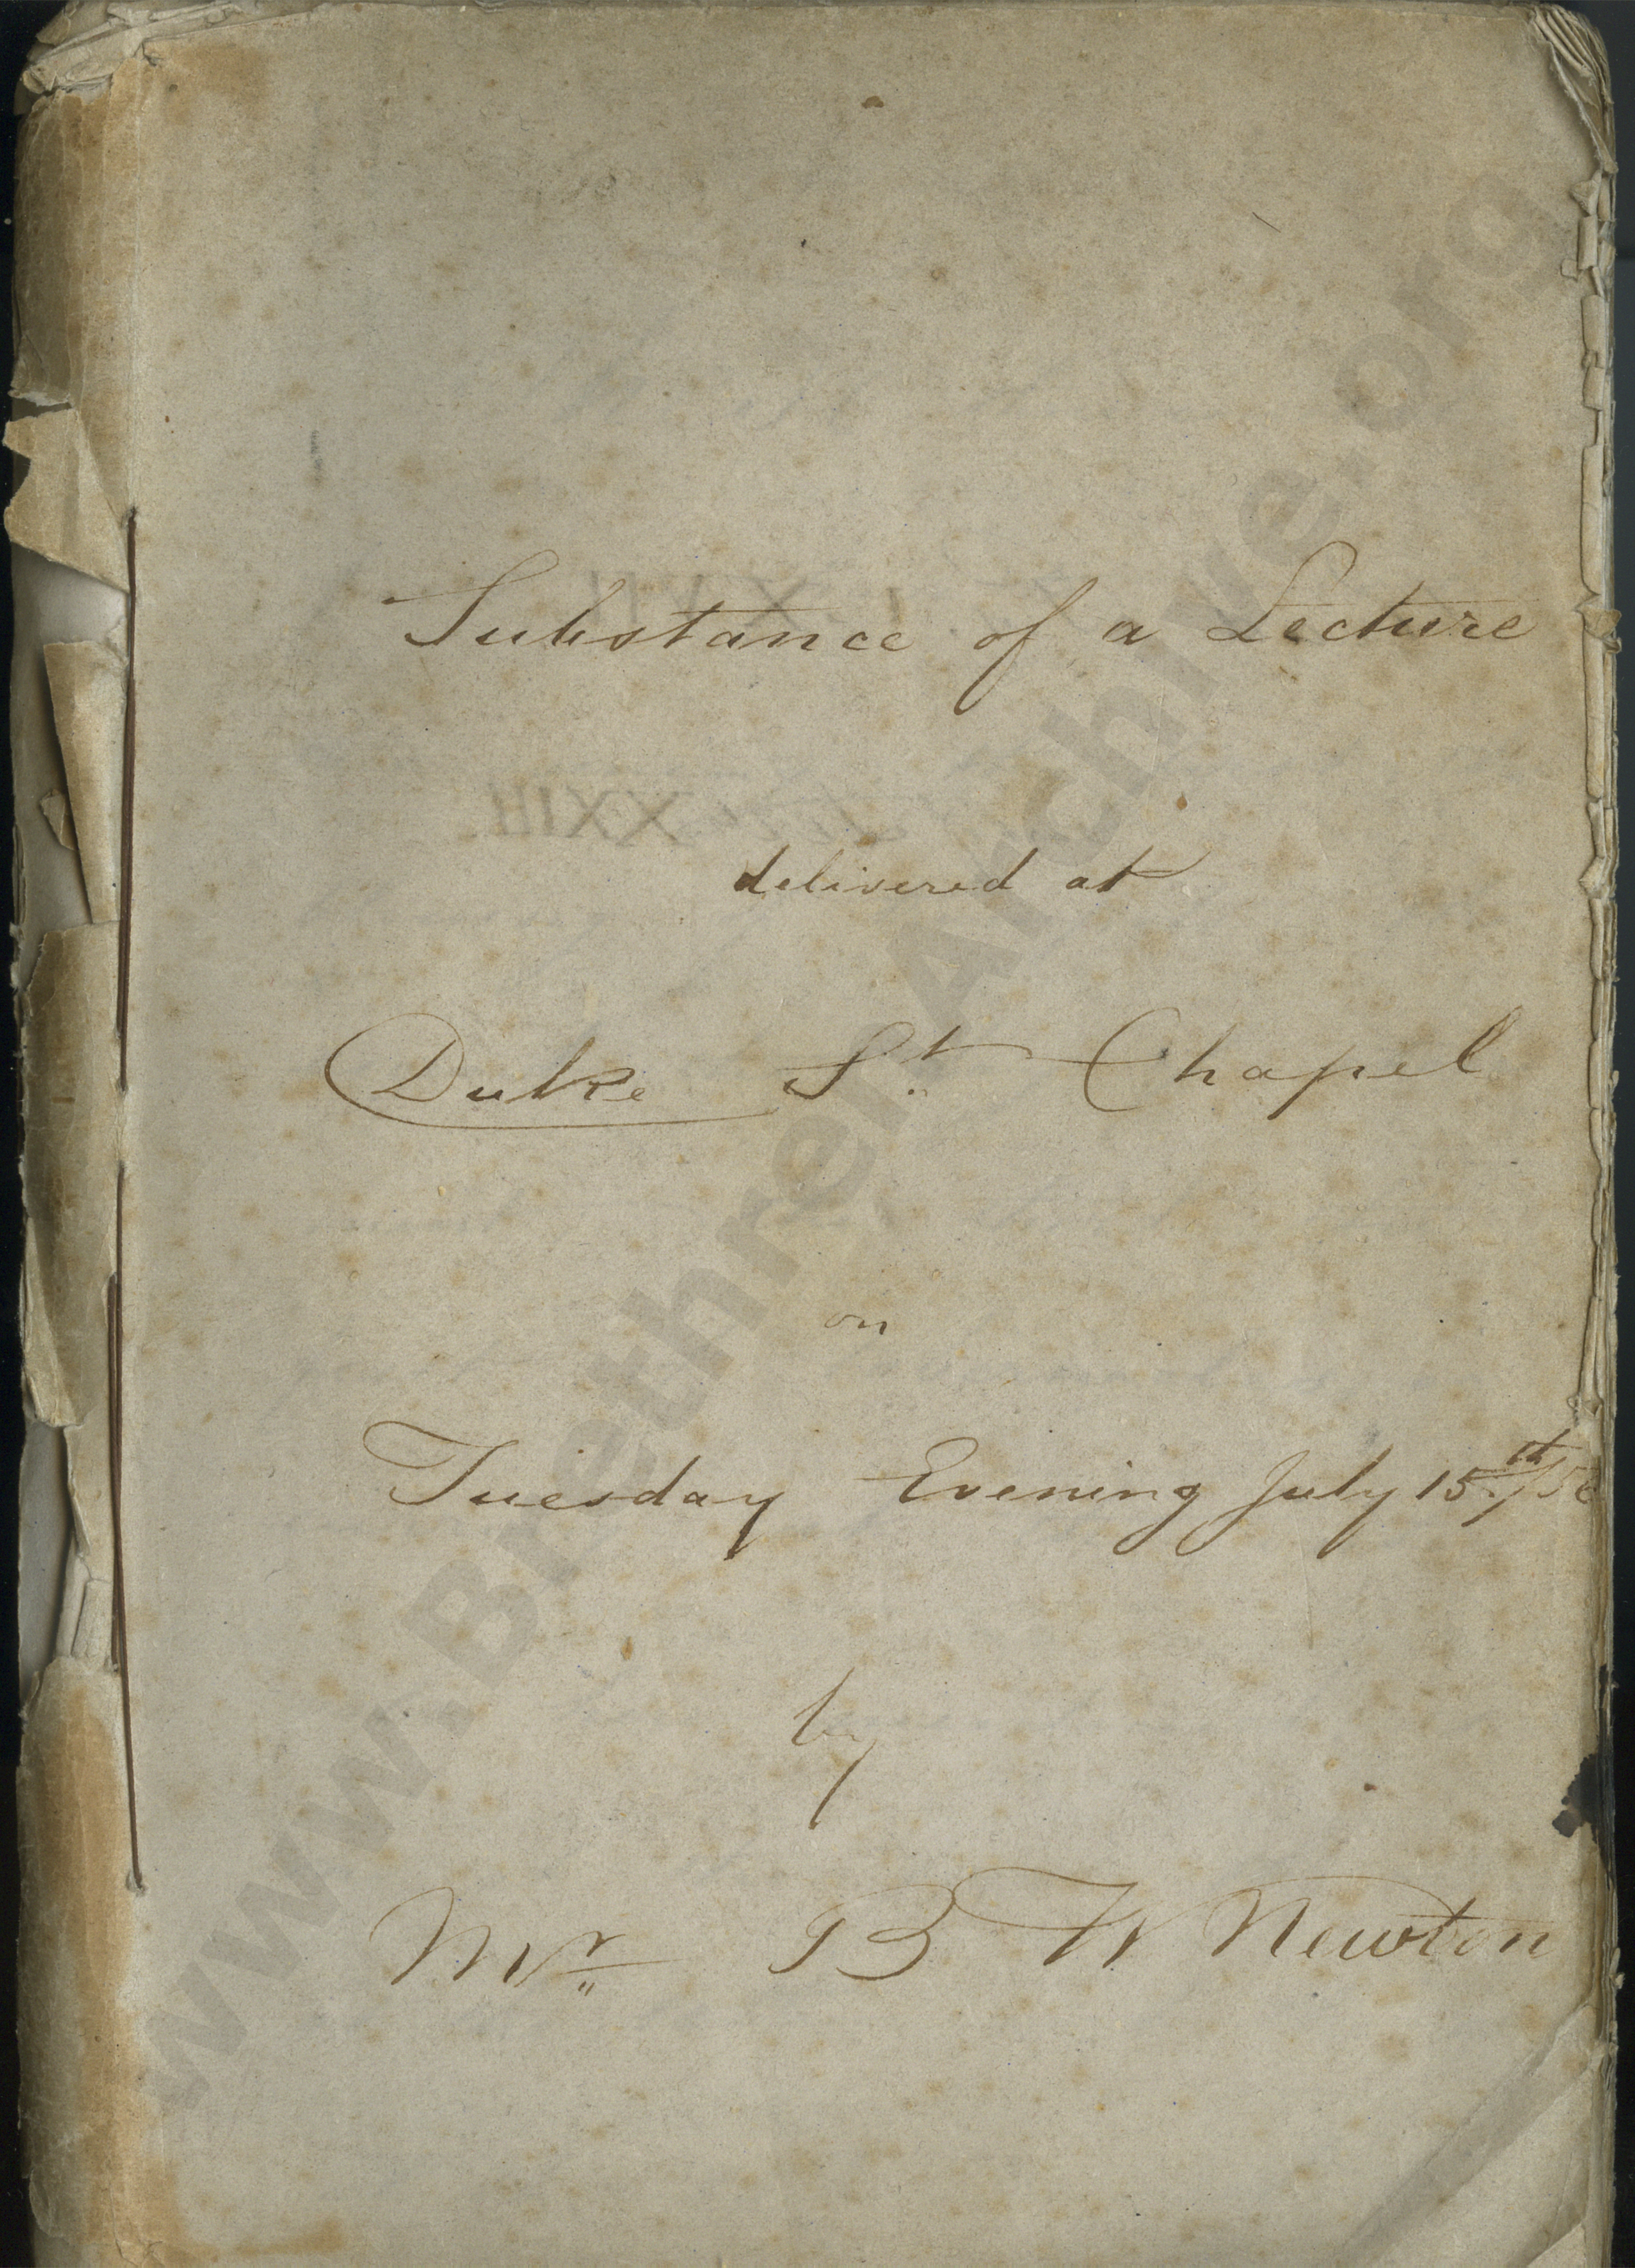 Substance of a Lecture
delivered at
Duke St Chapel
on
Tuesday Evening July 15th/56
by
Mr B W Newton
www.BrethrenArchive.org